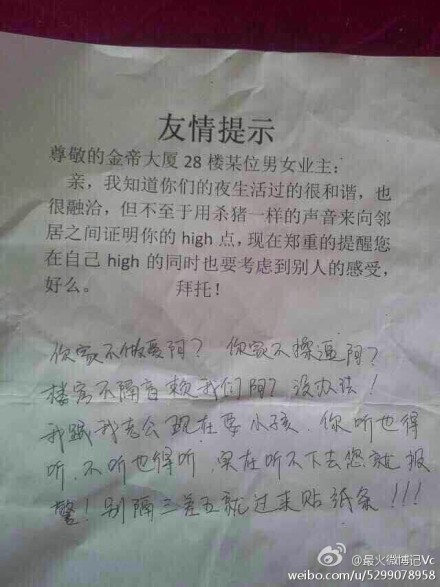 友情提示
尊敬的金帝大厦 28 楼某位男女业主：
亲，我知道你们的夜生活过的很和谐，也
很融洽，但不至于用杀猪一样的声音来向邻
居之间证明你的 high 点，现在郑重的提醒您
在自己 high 的同时也要考虑到别人的感受，
好么。 拜托！
你家不做爱阿？ 你家不操逼阿？
楼房不隔音赖我们阿？没办法！
我跟我老公现在要小孩．你听也得
听．不听也得听．实在听不下去您就报
警！别隔三差五就过来贴纸条！！！
@最火微博记Vc
weibo.com/u/5299078958